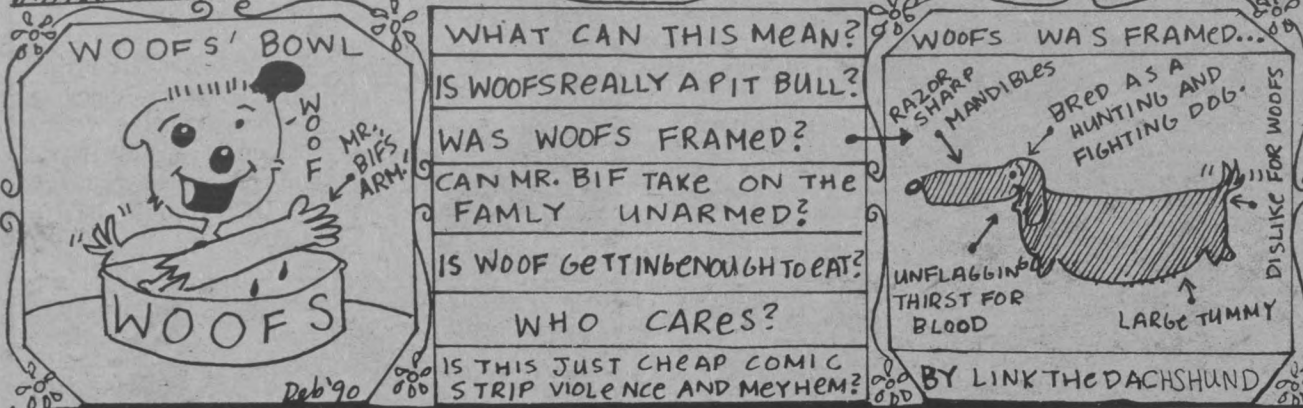 WOOFS' BOWL
WOOF
MR. BIFS ARM!
WOOFS
Deb'90
WHAT CAN THIS MEAN?
IS WOOFS REALLY A PIT BULL?
WAS WOOFS FRAMED?
CAN MR. BIF TAKE ON THE
FAMLY UNARMED?
IS WOOF GETTING ENOUGH TO EAT?
WHO CARES?
IS THIS JUST CHEAP COMIC
STRIP VIOLENCE AND MEYHEM?
WOOFS WAS FRAMED...
RAZOR
SHARP
MANDIBLES
BRED AS A
HUNTING AND
FIGHTING DOG.
DISLIKE FOR WOOFS
UNFLAGGING
THIRST FOR
BLOOD
LARGE TUMMY
BY LINK THE DACHSHUND